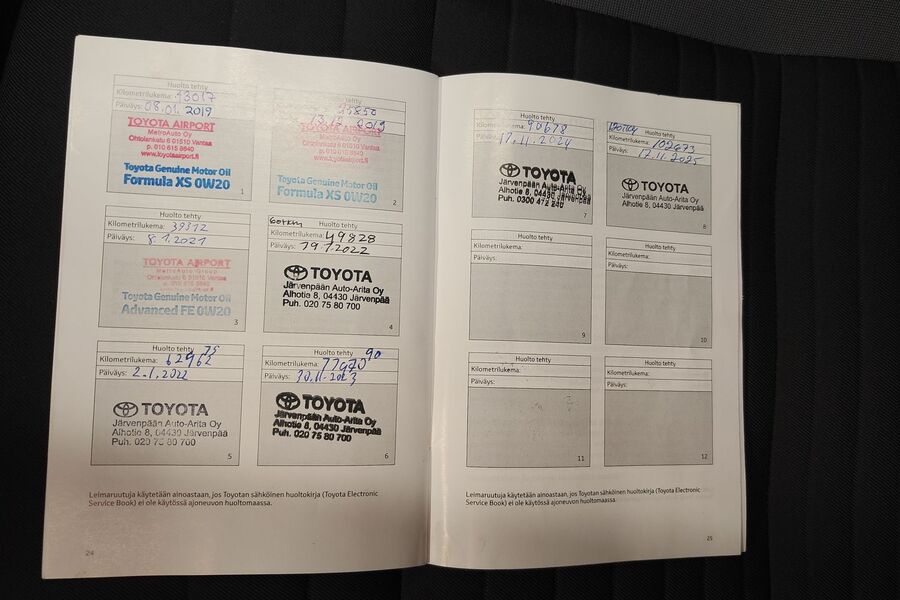 Huolto tehty
Kilometrilukema: 13017
Päiväys: 08.01. 2019
TOYOTA AIRPORT
MetroAuto Oy
Ohtolankatu 6 01510 Vantaa
p. 010 615 8640
www.toyotaairport.fi
Toyota Genuine Motor Oil
Formula XS 0W20
1
13.12 2019
TOYOTA AIRPORT
MetroAuto Oy
Toyota Genuine Motor Oil
Formula XS 0W20
2
Huolto tehty
Kilometrilukema: 39312
Päiväys: 8.1.2021
TOYOTA AIRPORT
Toyota Genuine Motor Oil
Advanced FE 0W20
3
60TKM Huolto tehty
Kilometrilukema: 49828
Päiväys: 19 1.2022
TOYOTA
Järvenpään Auto-Arita Oy
Alhotie 8, 04430 Järvenpää
Puh. 020 75 80 700
4
Huolto tehty 75
Kilometrilukema: 62962
Päiväys: 2.1.2022
TOYOTA
Järvenpään Auto-Arita Oy
Alhotie 8, 04430 Järvenpää
Puh. 020 75 80 700
5
Huolto tehty 90
Kilometrilukema:
Päiväys: 30.11.2023
TOYOTA
Järvenpään Auto-Arita Oy
Alhotie 8, 04430 Järvenpää
Puh. 020 75 80 700
6
Leimaruutuja käytetään ainoastaan, jos Toyotan sähköinen huoltokirja (Toyota Electronic
Service Book) ei ole käytössä ajoneuvon huoltomaassa.
24
Huolto tehty
Kilometrilukema: 90678
Päiväys: 17.11.2024
TOYOTA
Järvenpään Auto-Arita Oy
Alhotie 8, 04430 Järvenpää
Puh. 0300 472 240
7
Huolto tehty
Kilometrilukema: 102673
Päiväys: 17.11.2025
TOYOTA
Järvenpään Auto-Arita Oy
Alhotie 8, 04430 Järvenpää
Puh. 0300 472 240
8
Huolto tehty
Kilometrilukema:
Päiväys:
9
Huolto tehty
Kilometrilukema:
Päiväys:
10
Huolto tehty
Kilometrilukema:
Päiväys:
11
Huolto tehty
Kilometrilukema:
Päiväys:
12
Leimaruutuja käytetään ainoastaan, jos Toyotan sähköinen huoltokirja (Toyota Electronic
Service Book) ei ole käytössä ajoneuvon huoltomaassa.
25